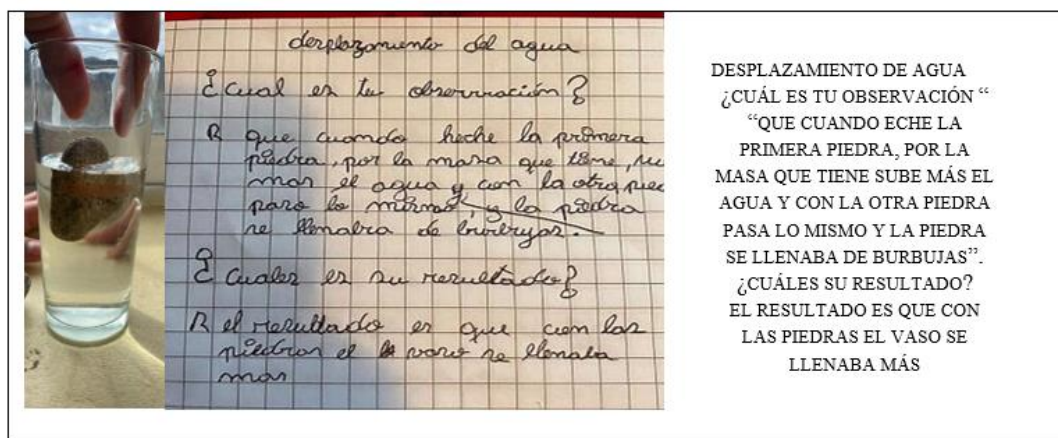 desplazamiento del agua
¿Cual es tu observación?
R que cuando heche la primera
piedra, por la masa que tiene, su
mas el agua y con la otra pied
paso lo mismo, y la piedra
se llenaba de burbujas.
¿Cuales es su resultado?
R el resultado es que con las
piedras el vaso se llenaba
mas
DESPLAZAMIENTO DE AGUA
¿CUÁL ES TU OBSERVACIÓN “
“QUE CUANDO ECHE LA
PRIMERA PIEDRA, POR LA
MASA QUE TIENE SUBE MÁS EL
AGUA Y CON LA OTRA PIEDRA
PASA LO MISMO Y LA PIEDRA
SE LLENABA DE BURBUJAS”.
¿CUÁLES SU RESULTADO?
EL RESULTADO ES QUE CON
LAS PIEDRAS EL VASO SE
LLENABA MÁS